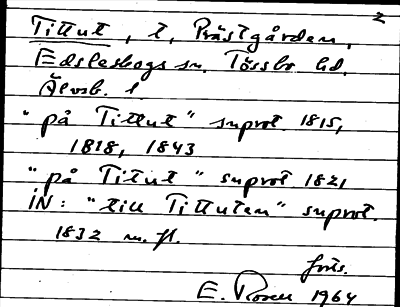 2
Tittut, t, Prästgården,
Edsleskogs sn. Tössbo hd,
Älvsb. l
"på Tittut" suprot 1815,
1818, 1843
"på Titut" suprot 1821
IN: "till Tittuten" suprot.
1832 m. fl.
forts.
E. Rosen 1964